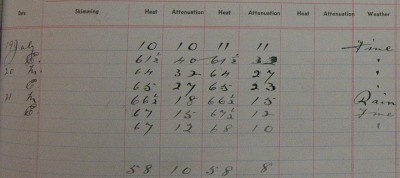 Skimming Heat Attenuation Heat Attenuation Heat Attenuation Weather
19 July 10 10 11 11 Fine
E. 61½ 40 61½ 33 "
20 M. 64 32 64 27 "
E 65 27 65 23
21 M 66½ 18 66½ 15 Rain
E. 67 15 67½ 12 Fine
67 12 68 10 "
58 10 58 8